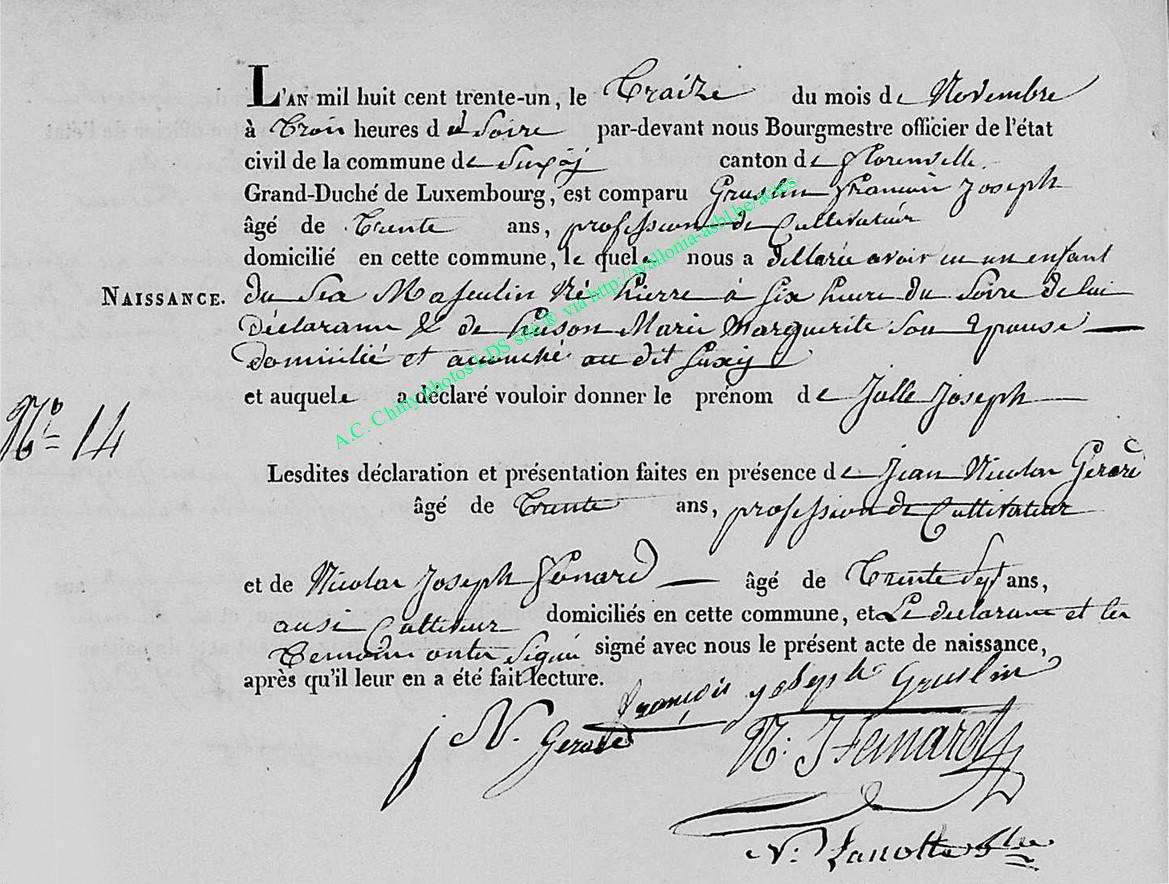 L'AN mil huit cent trente-un, le Traize du mois de Novembre
à Trois heures de Soire par-devant nous Bourgmestre officier de l'état
civil de la commune de Suxÿ canton de florenville
Grand-Duché de Luxembourg, est comparu Gruslin Francoin Joseph
âgé de Trente ans, profession de Cultivateur
domicilié en cette commune, le quele nous a dellarie avoir eu un enfant
NAISSANCE. du Sex Masculin Né hierre à Six heure du Soire de lui
Déclarann & de husson Marie Marguerite Son Epouse
domicilié et acouché au dit Suxy
et auquele a déclaré vouloir donner le prénom de Jolle Joseph
N° 14
Lesdites déclaration et présentation faites en présence de Jean Nicolas Gerard
âgé de Trente ans, profession de Cultivateur
et de Nicolas Joseph Fenard âgé de Trente Sept ans,
ausi Cultiveur domiciliés en cette commune, et Le declarant et les
Temoins onts Signé signé avec nous le présent acte de naissance,
après qu'il leur en a été fait lecture.
françois yoseph Gruslin
J N. Gerard
N: J Fenard
N: Lanotte
A.C. Chiny photos LDS site® via http://wallonia-asbl.be/actes